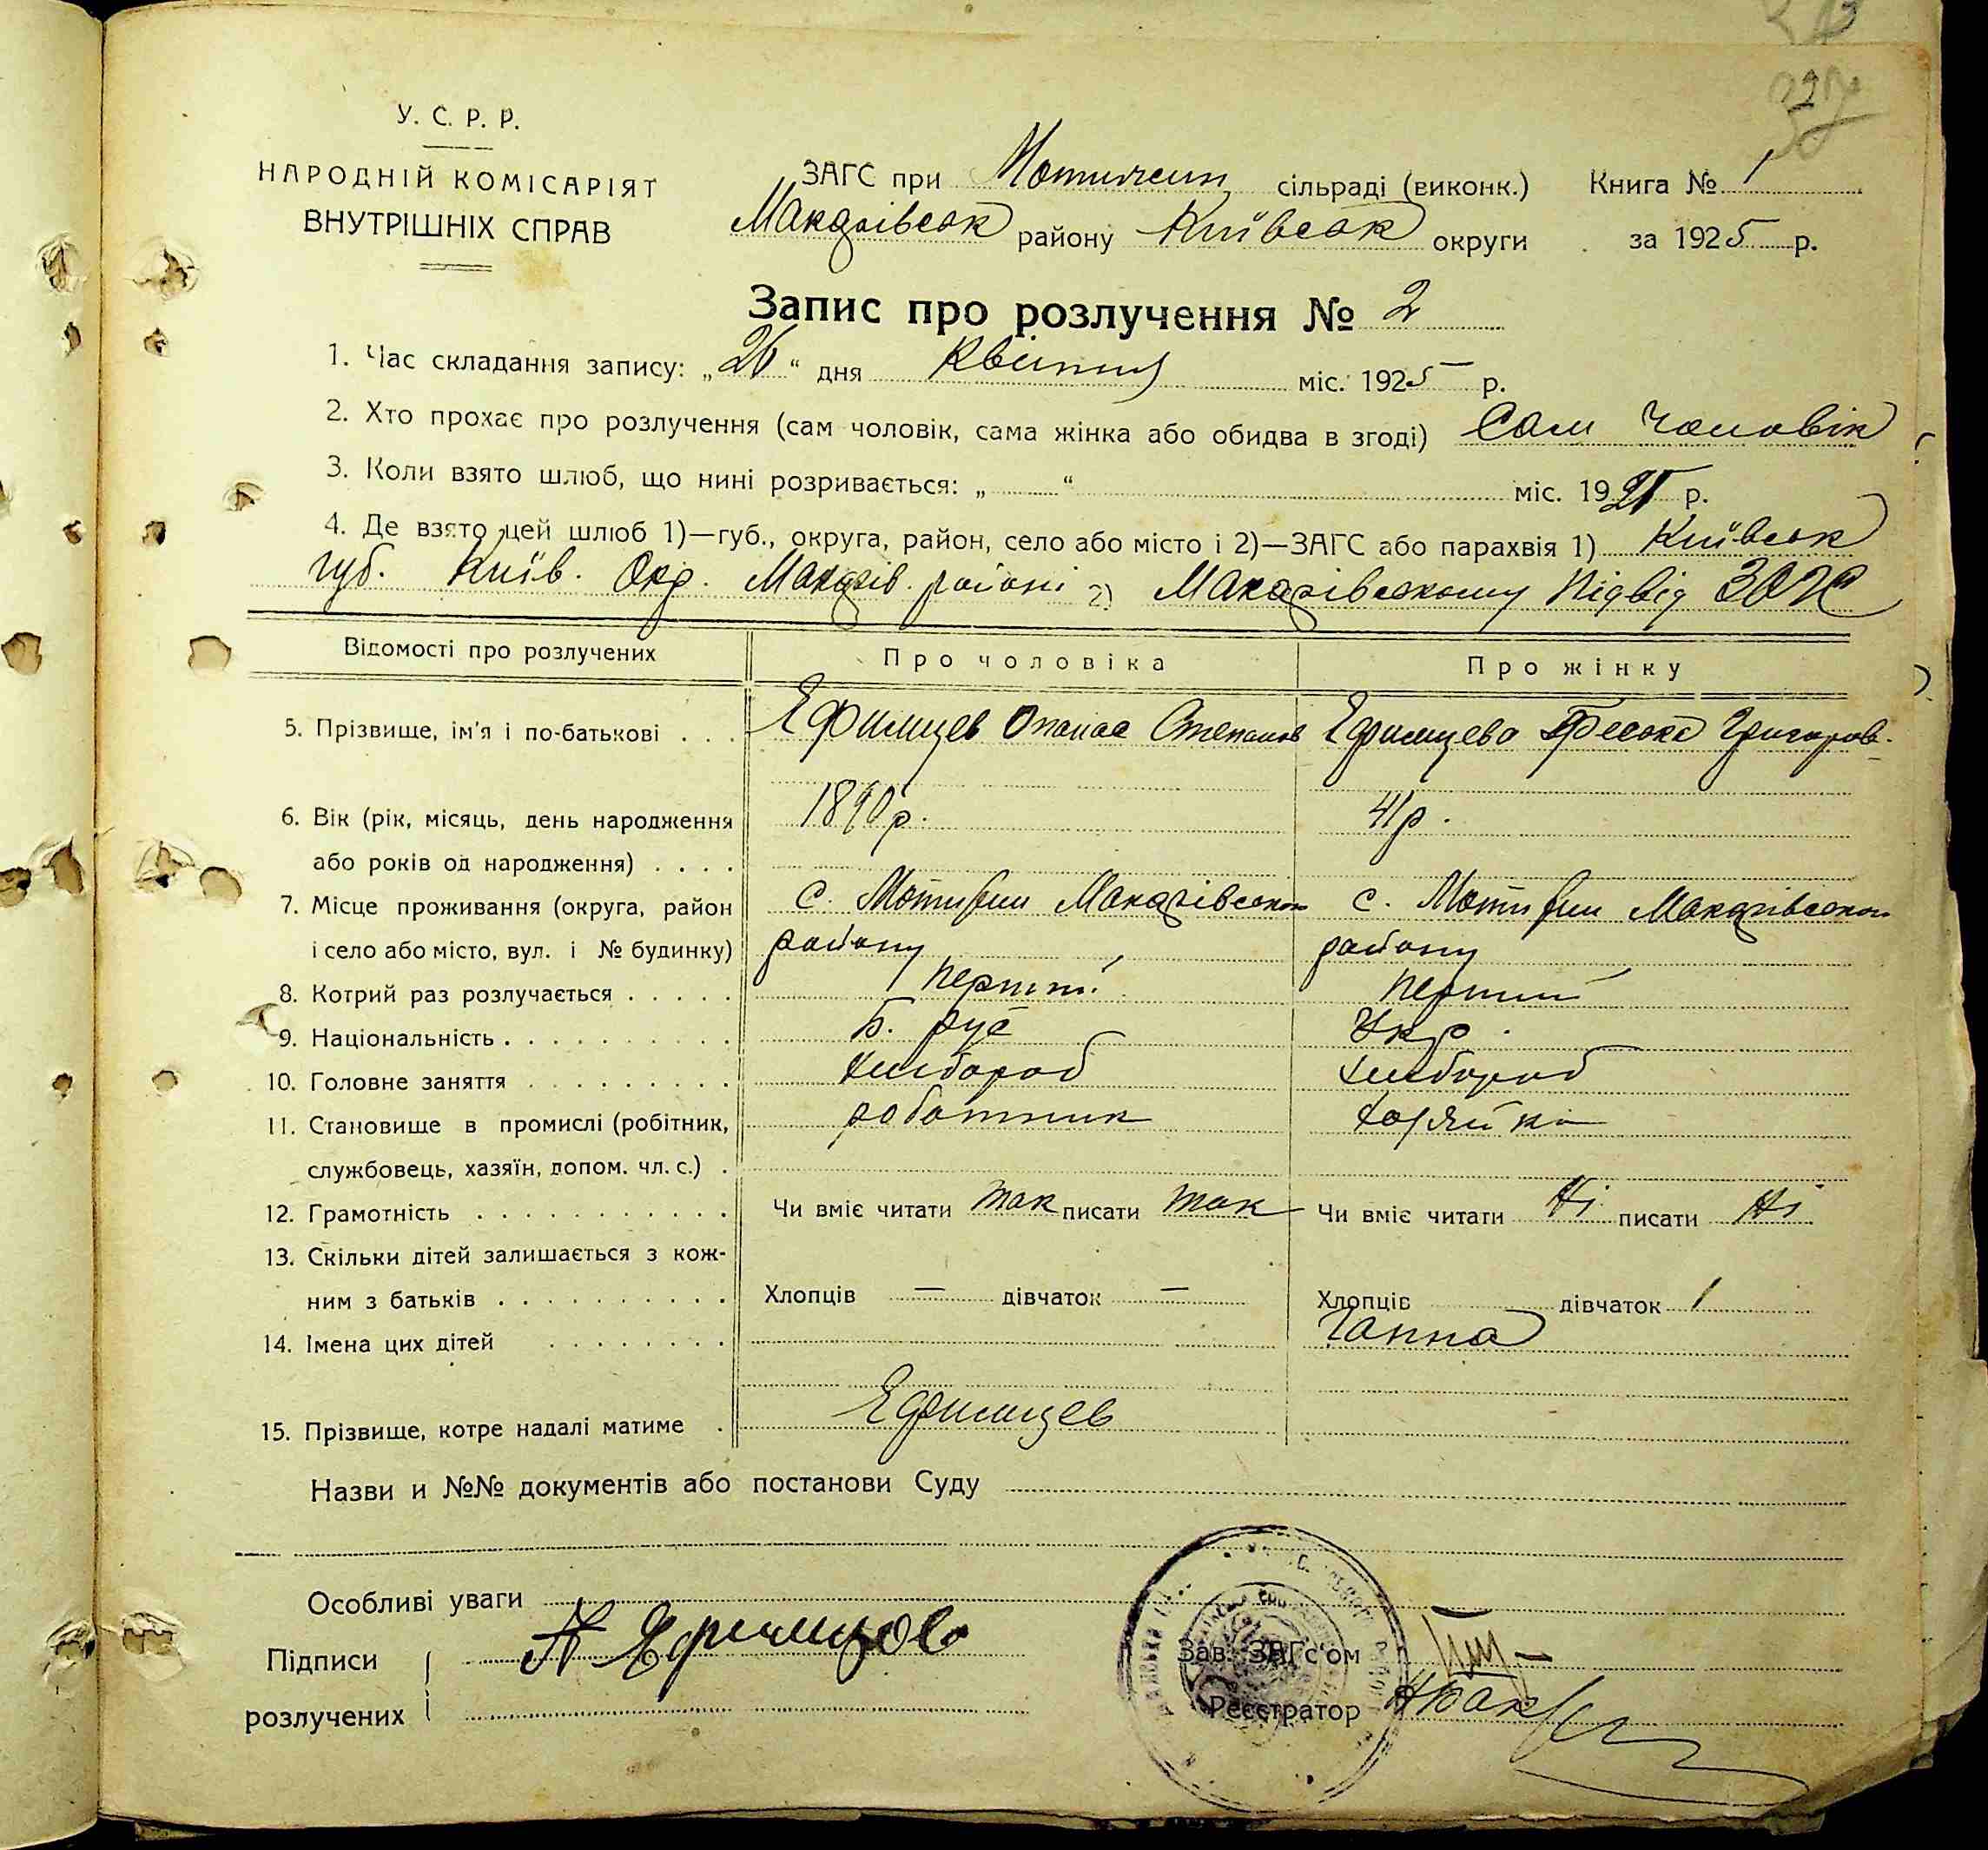 У. С. Р. Р.
НАРОДНІЙ КОМІСАРІЯТ
ВНУТРІШНІХ СПРАВ
ЗАГС при Мотижин сільраді (виконк.) Книга № 1
Макарівськ району Київськ округи за 1925 р.
Запис про розлучення № 2
1. Час складання запису: „26“ дня Квітня міс. 1925 р.
2. Хто прохає про розлучення (сам чоловік, сама жінка або обидва в згоді) Сам Чоловік
3. Коли взято шлюб, що нині розривається: „ “ міс. 1921 р.
4. Де взято цей шлюб 1)—губ., округа, район, село або місто і 2)—ЗАГС або парахвія 1) Київськ
губ. Київ. Окр. Макарів. районі 2) Макарівському Підвід ЗАГС
Відомості про розлучених Про чоловіка Про жінку
5. Прізвище, ім'я і по-батькові . . . Ефимцев Опанас Степанов Ефимцева Феська Григоров.
6. Вік (рік, місяць, день народження 1890 р. 41 р.
або років од народження) . . . .
7. Місце проживання (округа, район с. Мотижин Макарівського с. Мотижин Макарівського
і село або місто, вул. і № будинку) району району
8. Котрий раз розлучається . . . . . перший перший
9. Національність . . . . . . . . . . Б. рус Укр.
10. Головне заняття . . . . . . . . . хлібороб хлібороб
11. Становище в промислі (робітник, роботник хазяйка
службовець, хазяїн, допом. чл. с.) .
12. Грамотність . . . . . . . . . . . Чи вміє читати так писати так Чи вміє читати Ні писати Ні
13. Скільки дітей залишається з кож-
ним з батьків . . . . . . . . . . Хлопців — дівчаток — Хлопців дівчаток 1
14. Імена цих дітей . . . . . . . . Ганна
15. Прізвище, котре надалі матиме . Ефимцев
Назви и №№ документів або постанови Суду
Особливі уваги
Підписи А Ефимцов Зав. ЗАГс'ом
розлучених Реєстратор